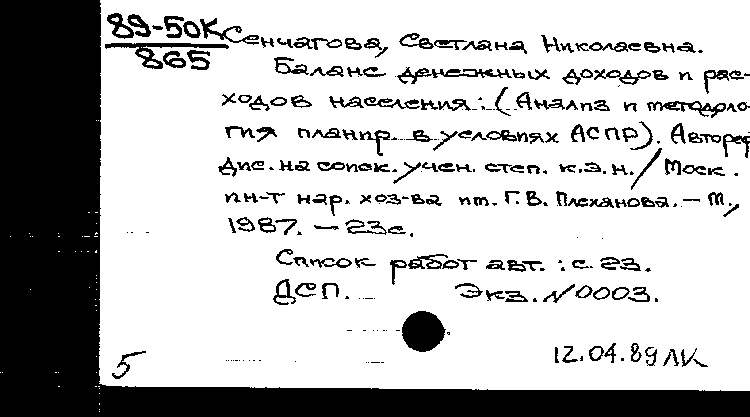 89-50К
865
Сенчагова, Светлана Николаевна.
Баланс денежных доходов и рас-
ходов населения: (Анализ и методоло-
гия планир. в условиях АСПР). Автореф.
дис. на соиск. учен. степ. к.э.н. / Моск.
ин-т нар. хоз-ва им. Г.В. Плеханова. – М.,
1987. – 23с.
Список работ авт.: с. 23.
ДСП. Экз. N 0003.
5 12.04.89 ЛК